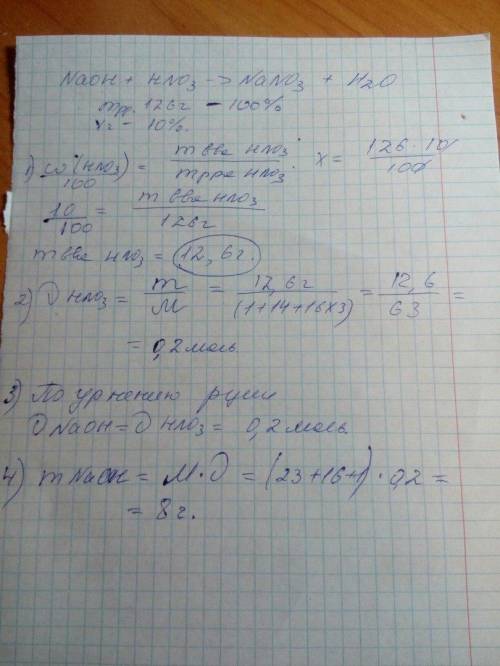 NaOH + HNO₃ -> NaNO₃ + H₂O
mрр. 126г – 100%
xг – 10%.
1) ω(HNO₃)/100 = m вва HNO₃ / m рра HNO₃ . x = 126 · 10 / 100
10/100 = m вва HNO₃ / 126г
m вва HNO₃ = 12,6г.
2) ν HNO₃ = m/M = 12,6г / (1+14+16×3) = 12,6 / 63 =
= 0,2 моль.
3) По ур-нению р-ции
ν NaOH = ν HNO₃ = 0,2 моль.
4) m NaOH = M·ν = (23+16+1) · 0,2 =
= 8г.